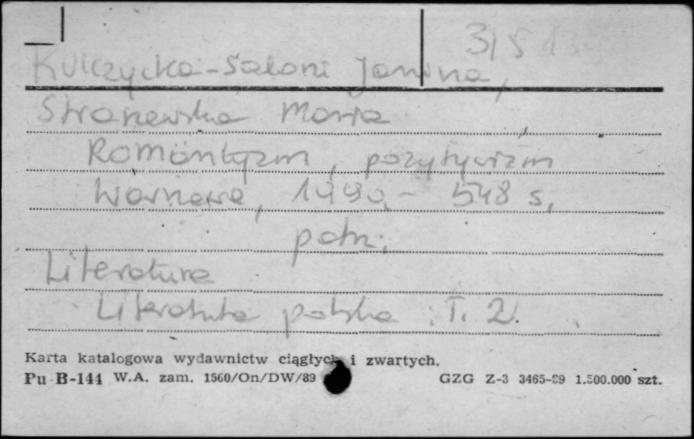 315
Kulczycka-Saloni Janina,
Straszewska Maria
Romantyzm, pozytywizm
Warszawa, 1990. - 548 s,
Literatura
Literatura polska T. 2.
Karta katalogowa wydawnictw ciągłych i zwartych.
Pu B-144 W.A. zam. 1560/On/DW/89 GZG Z-3 3465-89 1.500.000 szt.